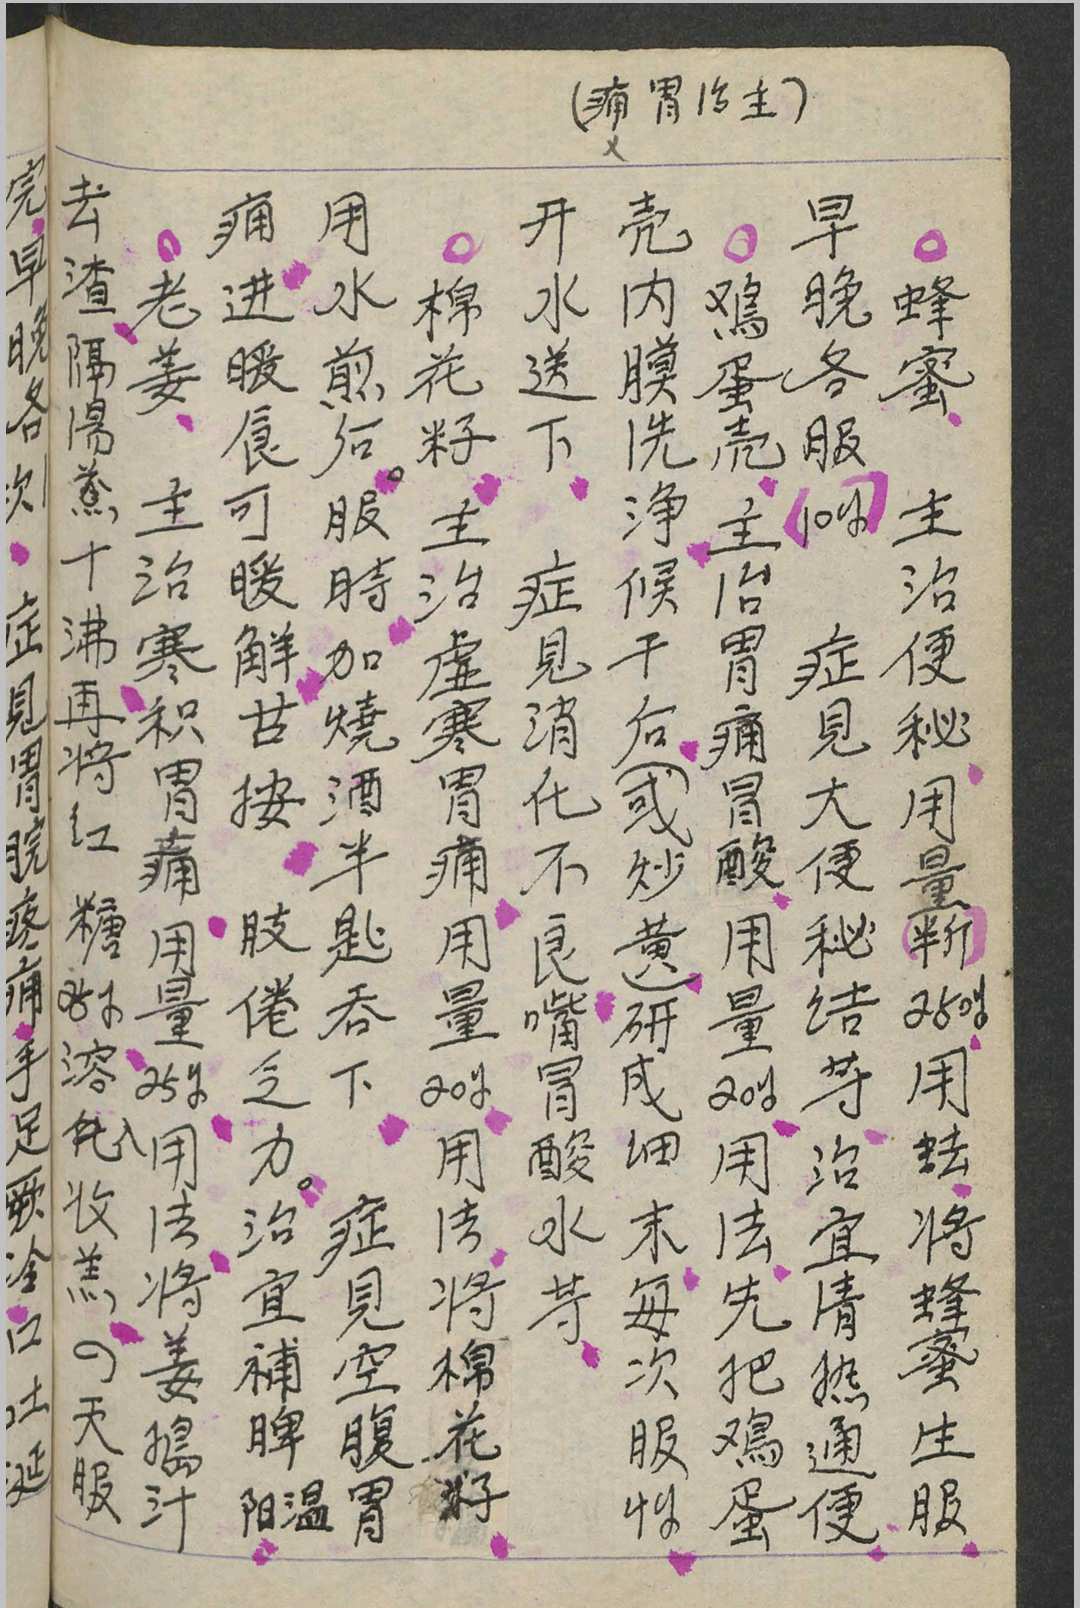 (主治胃痛)
蜂蜜 主治便秘用量半斤250g用法将蜂蜜生服
早晚各服10g 症見大便秘结等治宜清热通便
鸡蛋壳主治胃痛冒酸用量20g用法先把鸡蛋
壳内膜洗净候干后(或炒黄)研成细末每次服
开水送下 症見消化不良嘴冒酸水等
棉花籽主治虚寒胃痛用量20g用法将棉花籽
用水煎后。服時加燒酒半匙吞下 症見空腹胃
痛进暖食可暖解甘按 肢倦乏力。治宜補脾温阳
老姜 主治寒积胃痛用量25g用法将姜搗汁
去渣隔湯蒸十沸再将红糖25g溶化入收羔の天服
完早晚各次 症見胃脘疼痛手足厥冷口吐涎